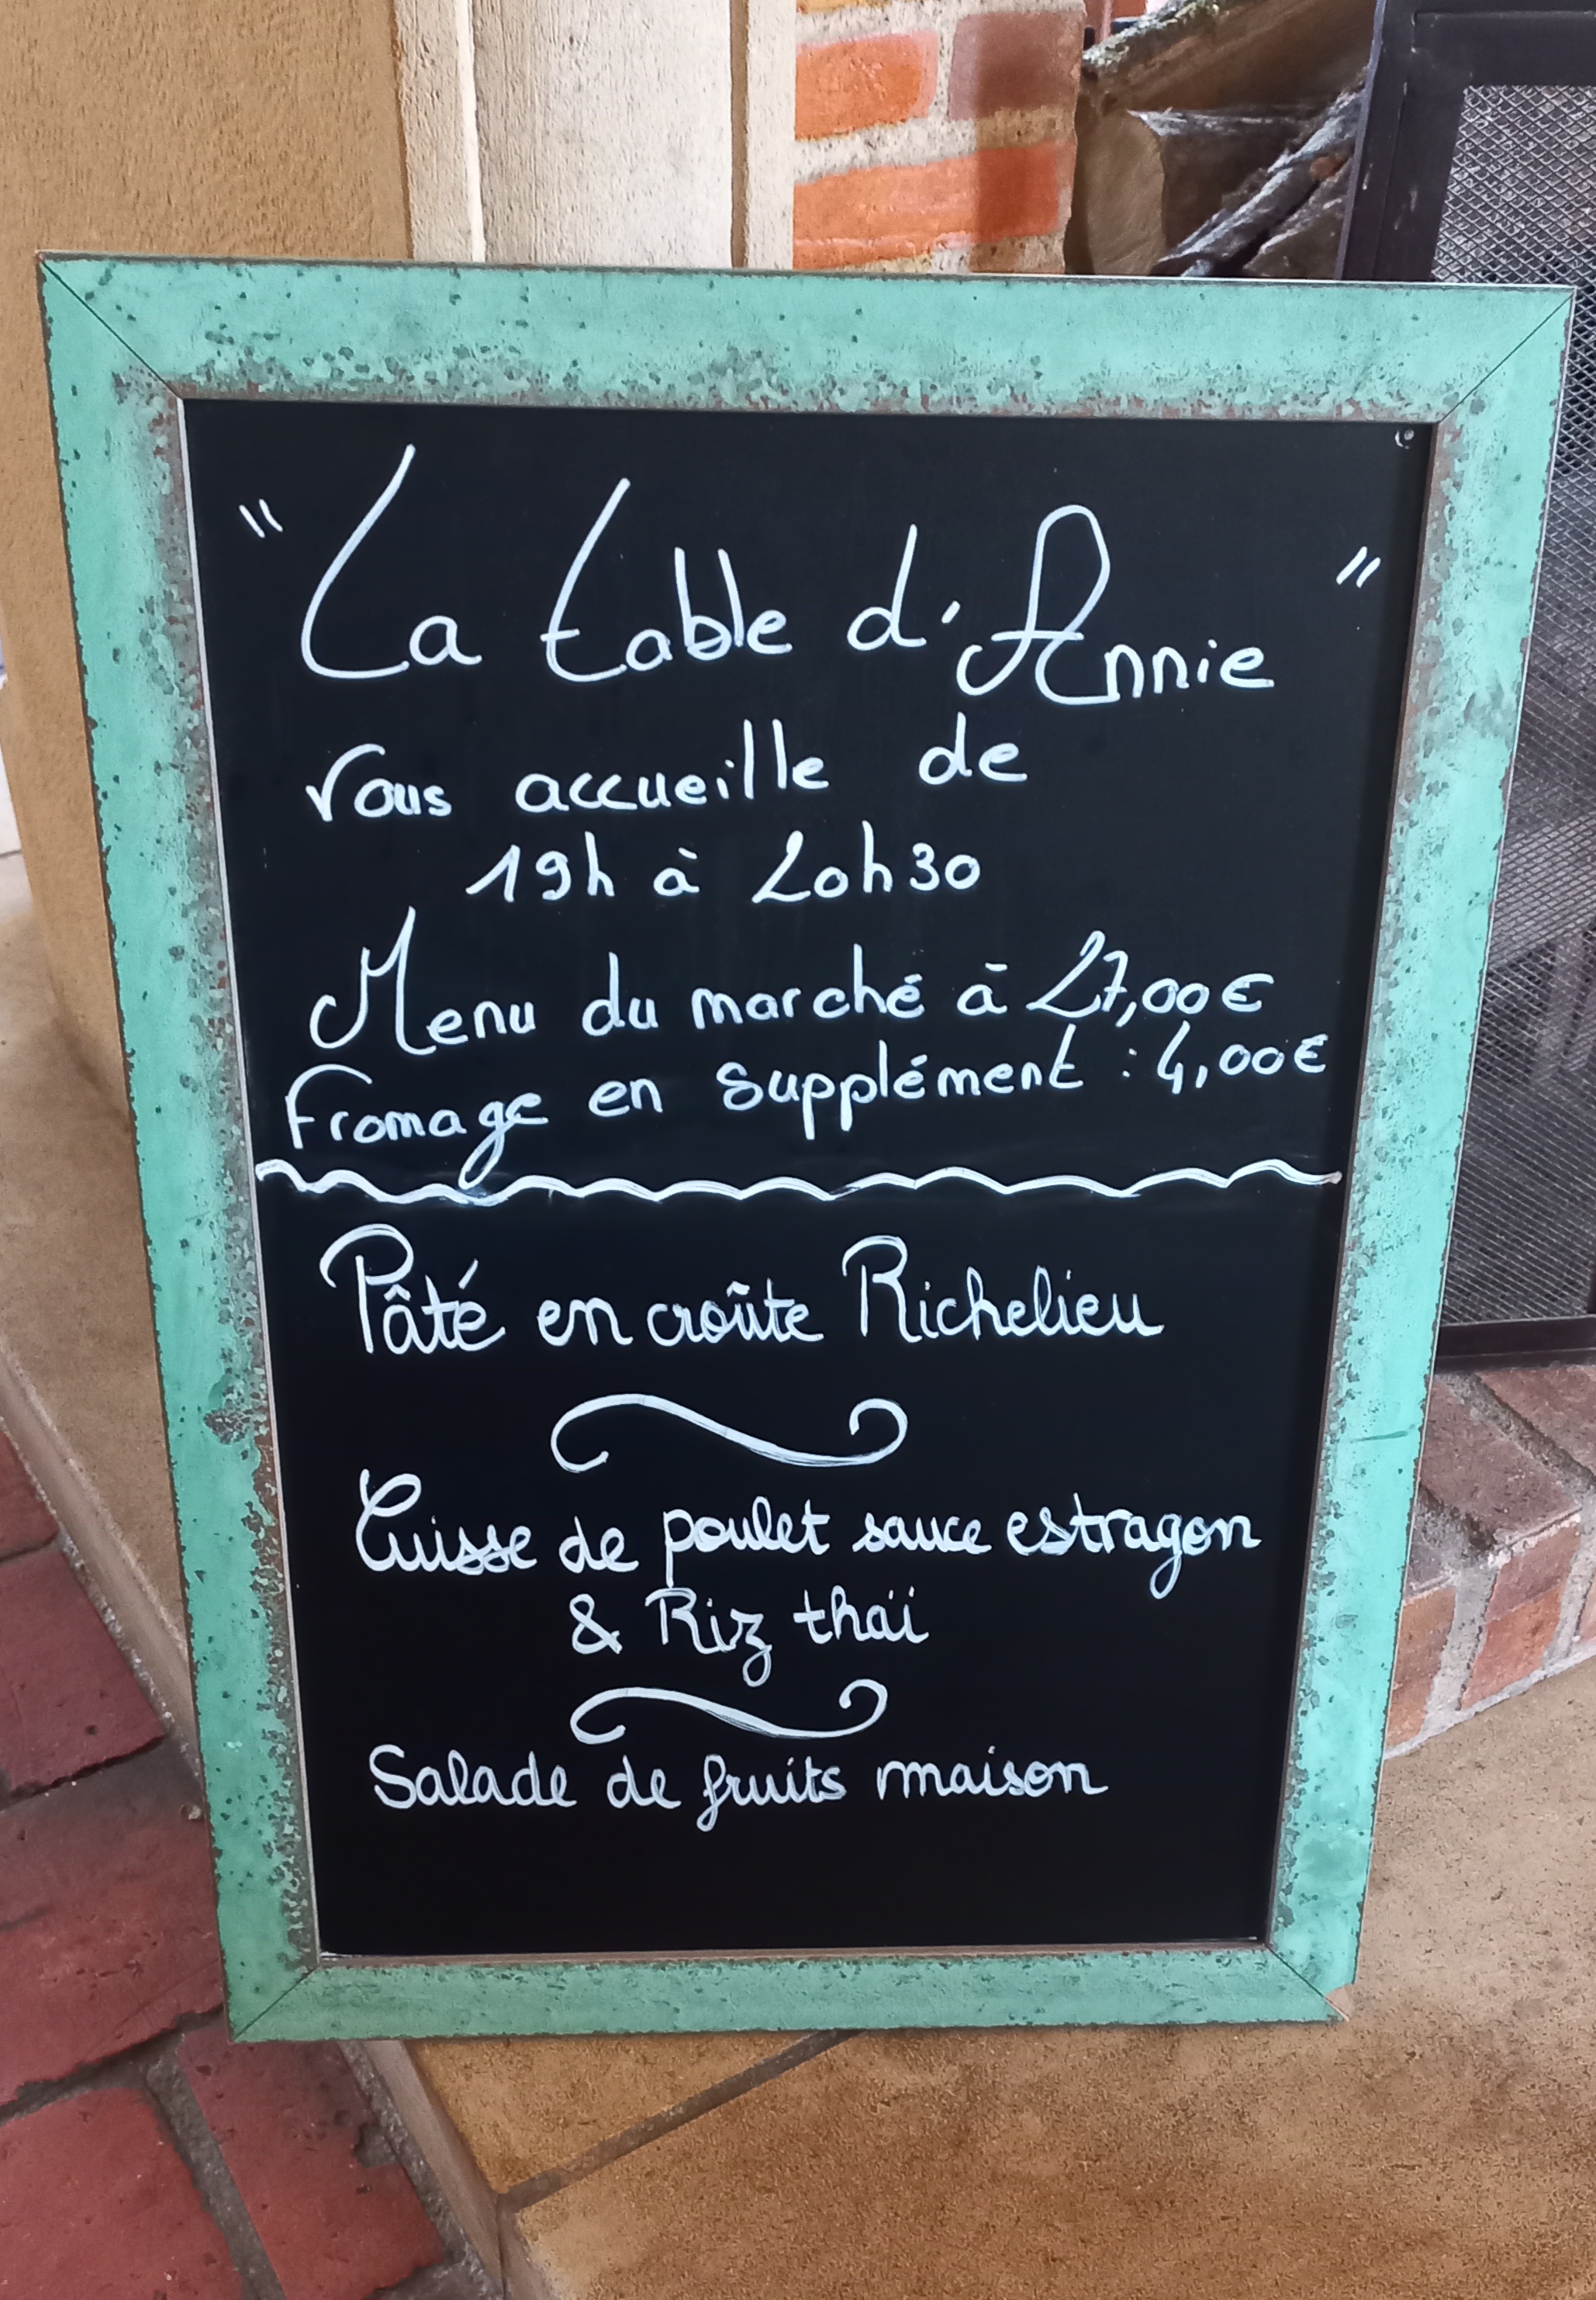 " La table d'Annie "
Vous accueille de
19h à 20h30
Menu du marché à 27,00€
Fromage en supplément : 4,00€
Pâté en croûte Richelieu
Cuisse de poulet sauce estragon
& Riz thaï
Salade de fruits maison